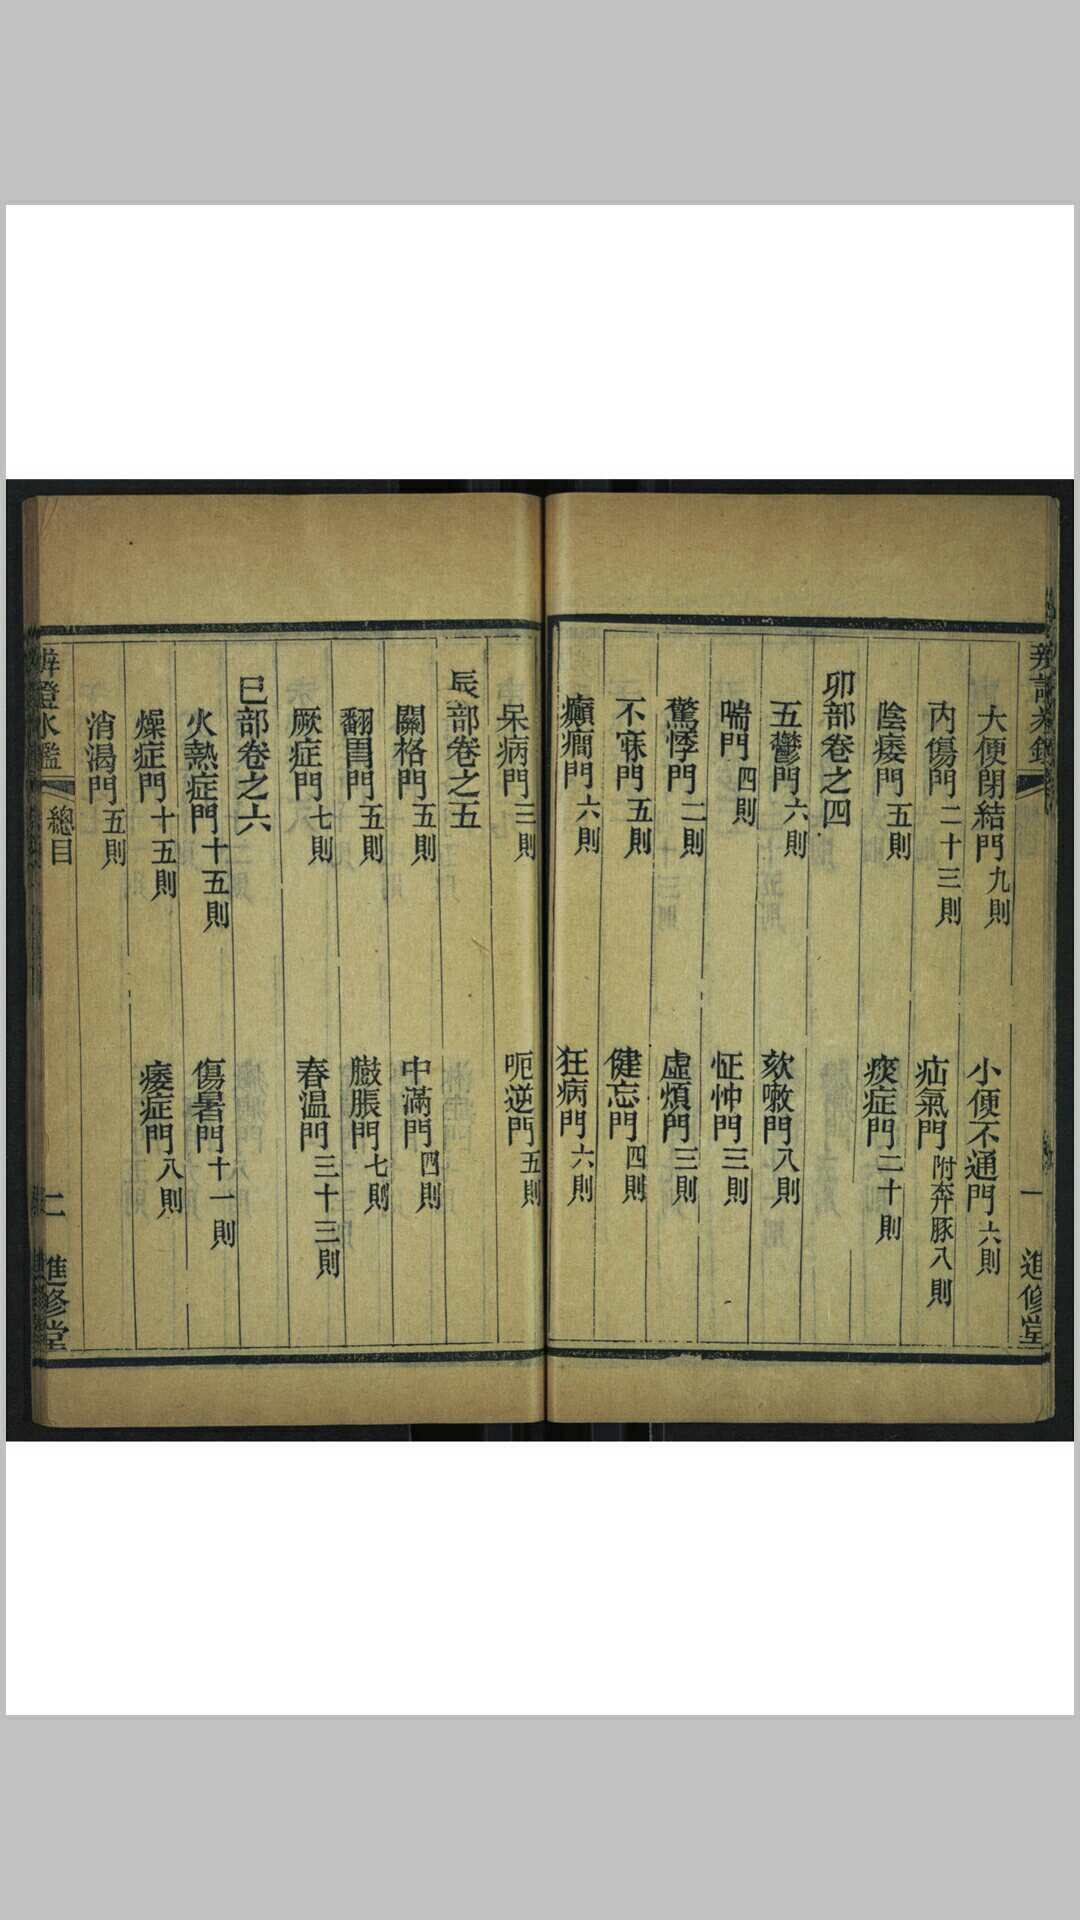 大便閉結門九則 小便不通門六則
內傷門二十三則 疝氣門附奔豚八則
陰痿門五則 痰症門二十則
卯部卷之四
五鬱門六則 欬嗽門八則
喘門四則 怔忡門三則
驚悸門二則 虛煩門三則
不寐門五則 健忘門四則
癲癇門六則 狂病門六則
呆病門三則 呃逆門五則
辰部卷之五
關格門五則 中滿門四則
翻胃門五則 臌脹門七則
厥症門七則 春温門三十三則
巳部卷之六
火熱症門十五則 傷暑門十一則
燥症門十五則 痿症門八則
消渴門五則
總目 二 進修堂
一 進修堂